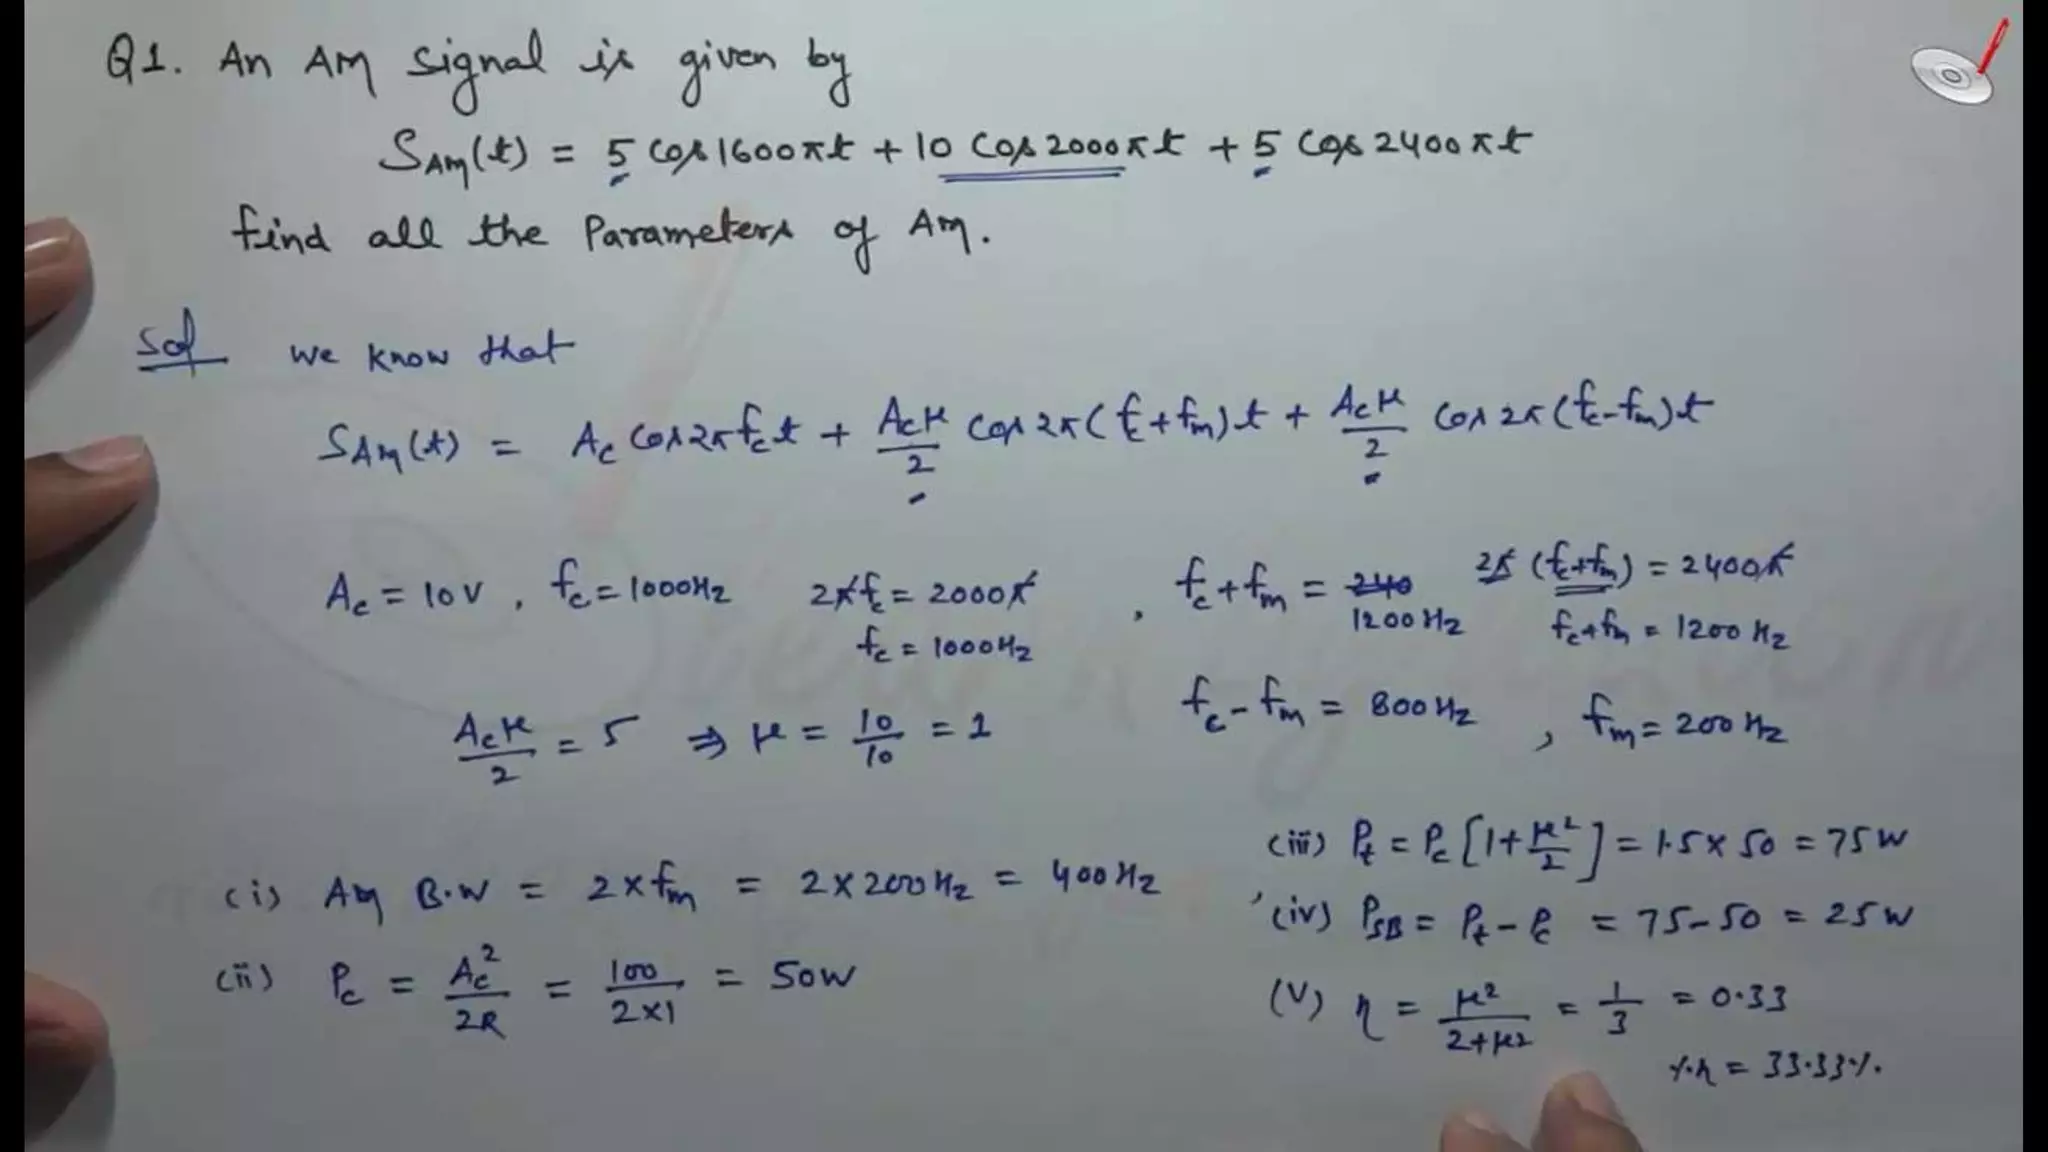 Q1. An AM signal is given by
S_AM(t) = 5 cos 1600πt + 10 cos 2000πt + 5 cos 2400πt
find all the Parameters of AM.
Sol we know that
S_AM(t) = A_c cos 2πf_c t + A_cμ/2 cos 2π(f_c+f_m)t + A_cμ/2 cos 2π(f_c-f_m)t
A_c = 10V, f_c = 1000Hz 2πf_c = 2000π , f_c+f_m = 240 2π(f_c+f_m) = 2400π
f_c = 1000Hz 1200Hz f_c+f_m = 1200Hz
A_cμ/2 = 5 ⇒ μ = 10/10 = 1 f_c-f_m = 800Hz , f_m = 200Hz
(i) AM B.W = 2×f_m = 2×200Hz = 400Hz
(ii) P_c = A_c²/2R = 100/2×1 = 50W
(iii) P_t = P_c[1+μ²/2] = 1.5×50 = 75W
(iv) P_SB = P_t - P_c = 75-50 = 25W
(V) η = μ²/2+μ2 = 1/3 = 0.33
%η = 33.33%.